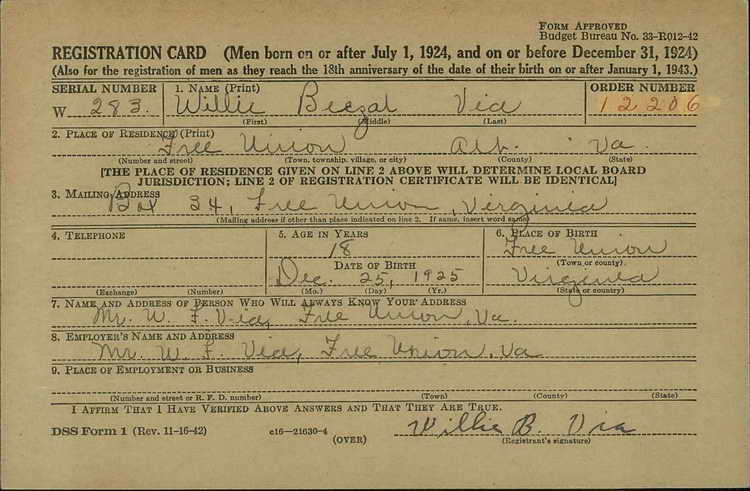 FORM APPROVED
Budget Bureau No. 33-R012-42
REGISTRATION CARD (Men born on or after July 1, 1924, and on or before December 31, 1924)
(Also for the registration of men as they reach the 18th anniversary of the date of their birth on or after January 1, 1943.)
SERIAL NUMBER 1. NAME (Print) ORDER NUMBER
W 283. Willie Via 12206
(First) (Middle) (Last)
2. PLACE OF RESIDENCE (Print)
Free Union Alb. Va.
(Number and street) (Town, township, village, or city) (County) (State)
[THE PLACE OF RESIDENCE GIVEN ON LINE 2 ABOVE WILL DETERMINE LOCAL BOARD
JURISDICTION; LINE 2 OF REGISTRATION CERTIFICATE WILL BE IDENTICAL]
3. MAILING ADDRESS
Box 34, Free Union, Virginia
(Mailing address if other than place indicated on line 2. If same, insert word same)
4. TELEPHONE 5. AGE IN YEARS 6. PLACE OF BIRTH
18 Free Union
DATE OF BIRTH (Town or county)
Dec. 25, 1925 Virginia
(Exchange) (Number) (Mo.) (Day) (Yr.) (State or country)
7. NAME AND ADDRESS OF PERSON WHO WILL ALWAYS KNOW YOUR ADDRESS
Mr. W. F. Via, Free Union, Va.
8. EMPLOYER'S NAME AND ADDRESS
Mr. W. F. Via, Free Union, Va
9. PLACE OF EMPLOYMENT OR BUSINESS
(Number and street or R. F. D. number) (Town) (County) (State)
I AFFIRM THAT I HAVE VERIFIED ABOVE ANSWERS AND THAT THEY ARE TRUE.
DSS Form 1 (Rev. 11-16-42) c16—21630-4 Willie B. Via
(OVER) (Registrant's signature)